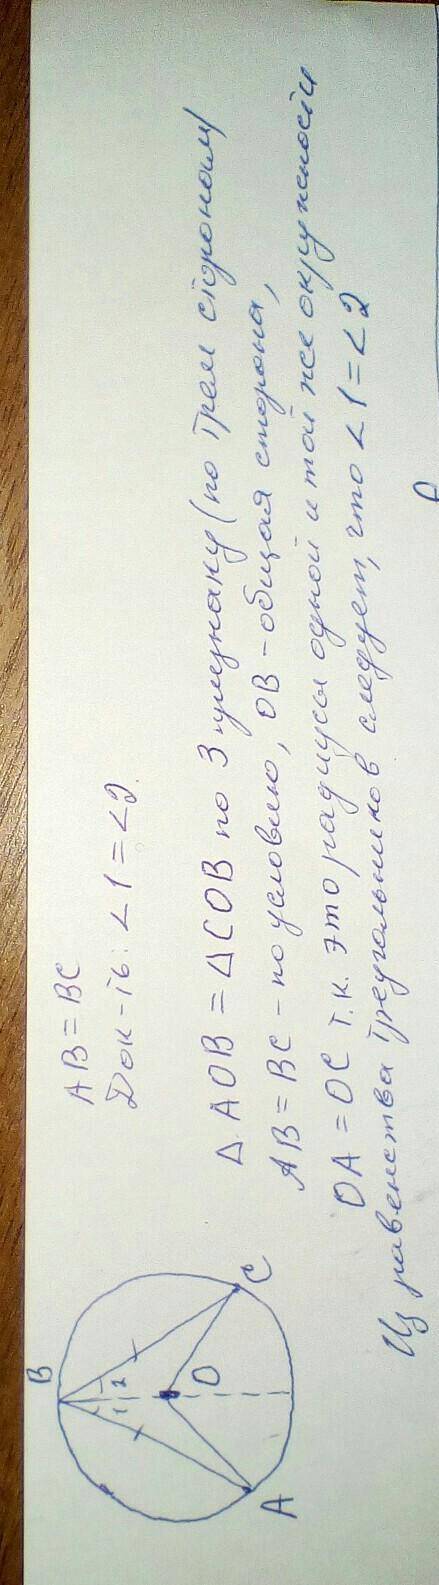 AB = BC
Док-ть: ∠1 = ∠2.
Δ AOB = Δ COB по 3 признаку (по трем сторонам)
AB = BC - по условию, OB - общая сторона,
OA = OC т.к. это радиусы одной и той же окружности
Из равенства треугольников следует, что ∠1 = ∠2
B
1 2
O
A
C